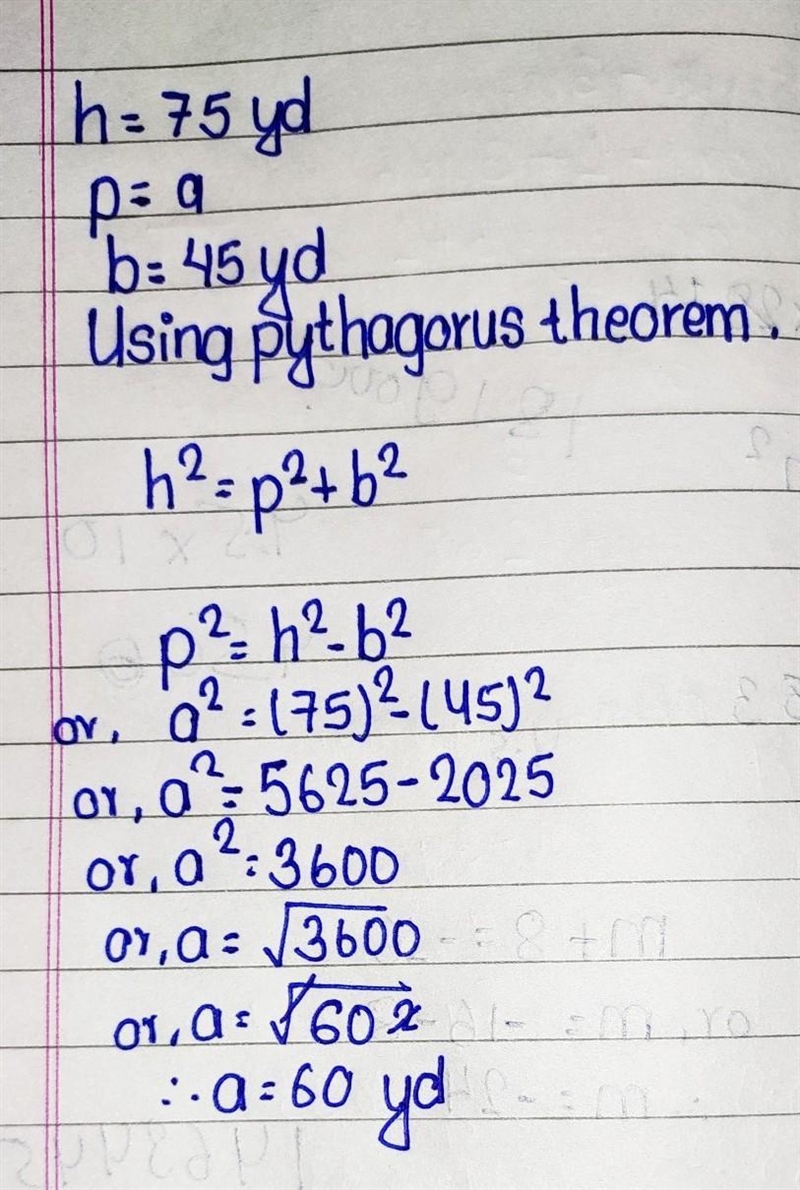 h = 75 yd
p = a
b = 45 yd
Using pythagorus theorem.
h² = p² + b²
p² = h² - b²
or, a² = (75)² - (45)²
or, a² = 5625 - 2025
or, a² = 3600
or, a = √3600
or, a = √60²
∴ a = 60 yd